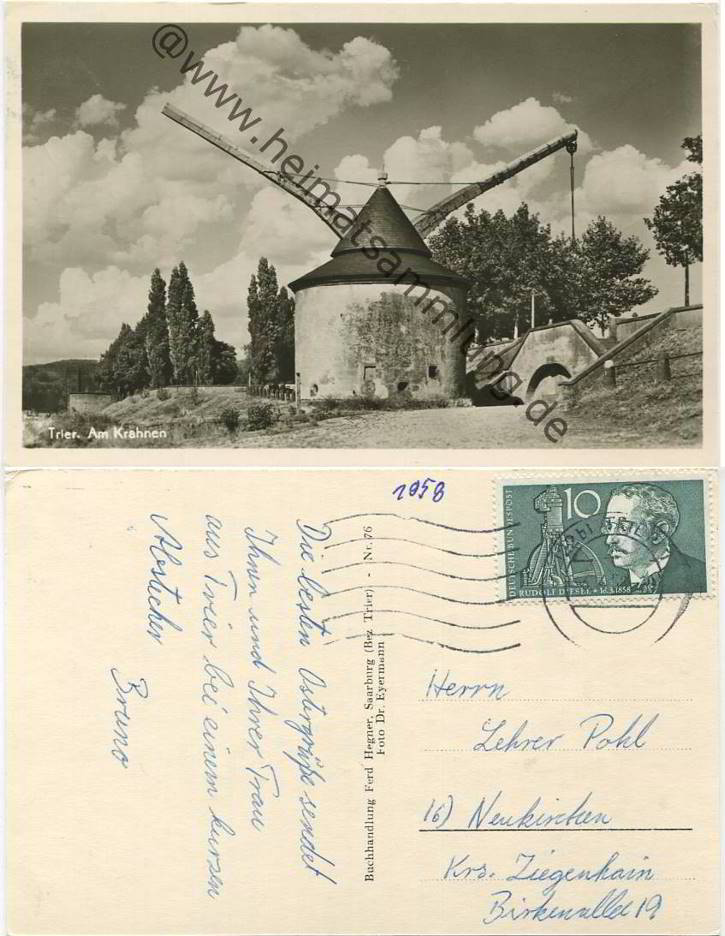 @www.heimatsammlung.de
Trier. Am Krahnen
1958
DEUTSCHE BUNDESPOST
10
RUDOLF DIESEL * 18.3.1858
Die besten Ostergrüße sendet
Ihnen und Ihrer Frau
aus Trier bei einem kurzen
Abstecher
Bruno
Buchhandlung Ferd Hegner, Saarburg (Bez Trier) - Nr. 76
Foto Dr. Eyermann
Herrn
Lehrer Pohl
16) Neukirchen
Krs. Ziegenhain
Birkenallee 19